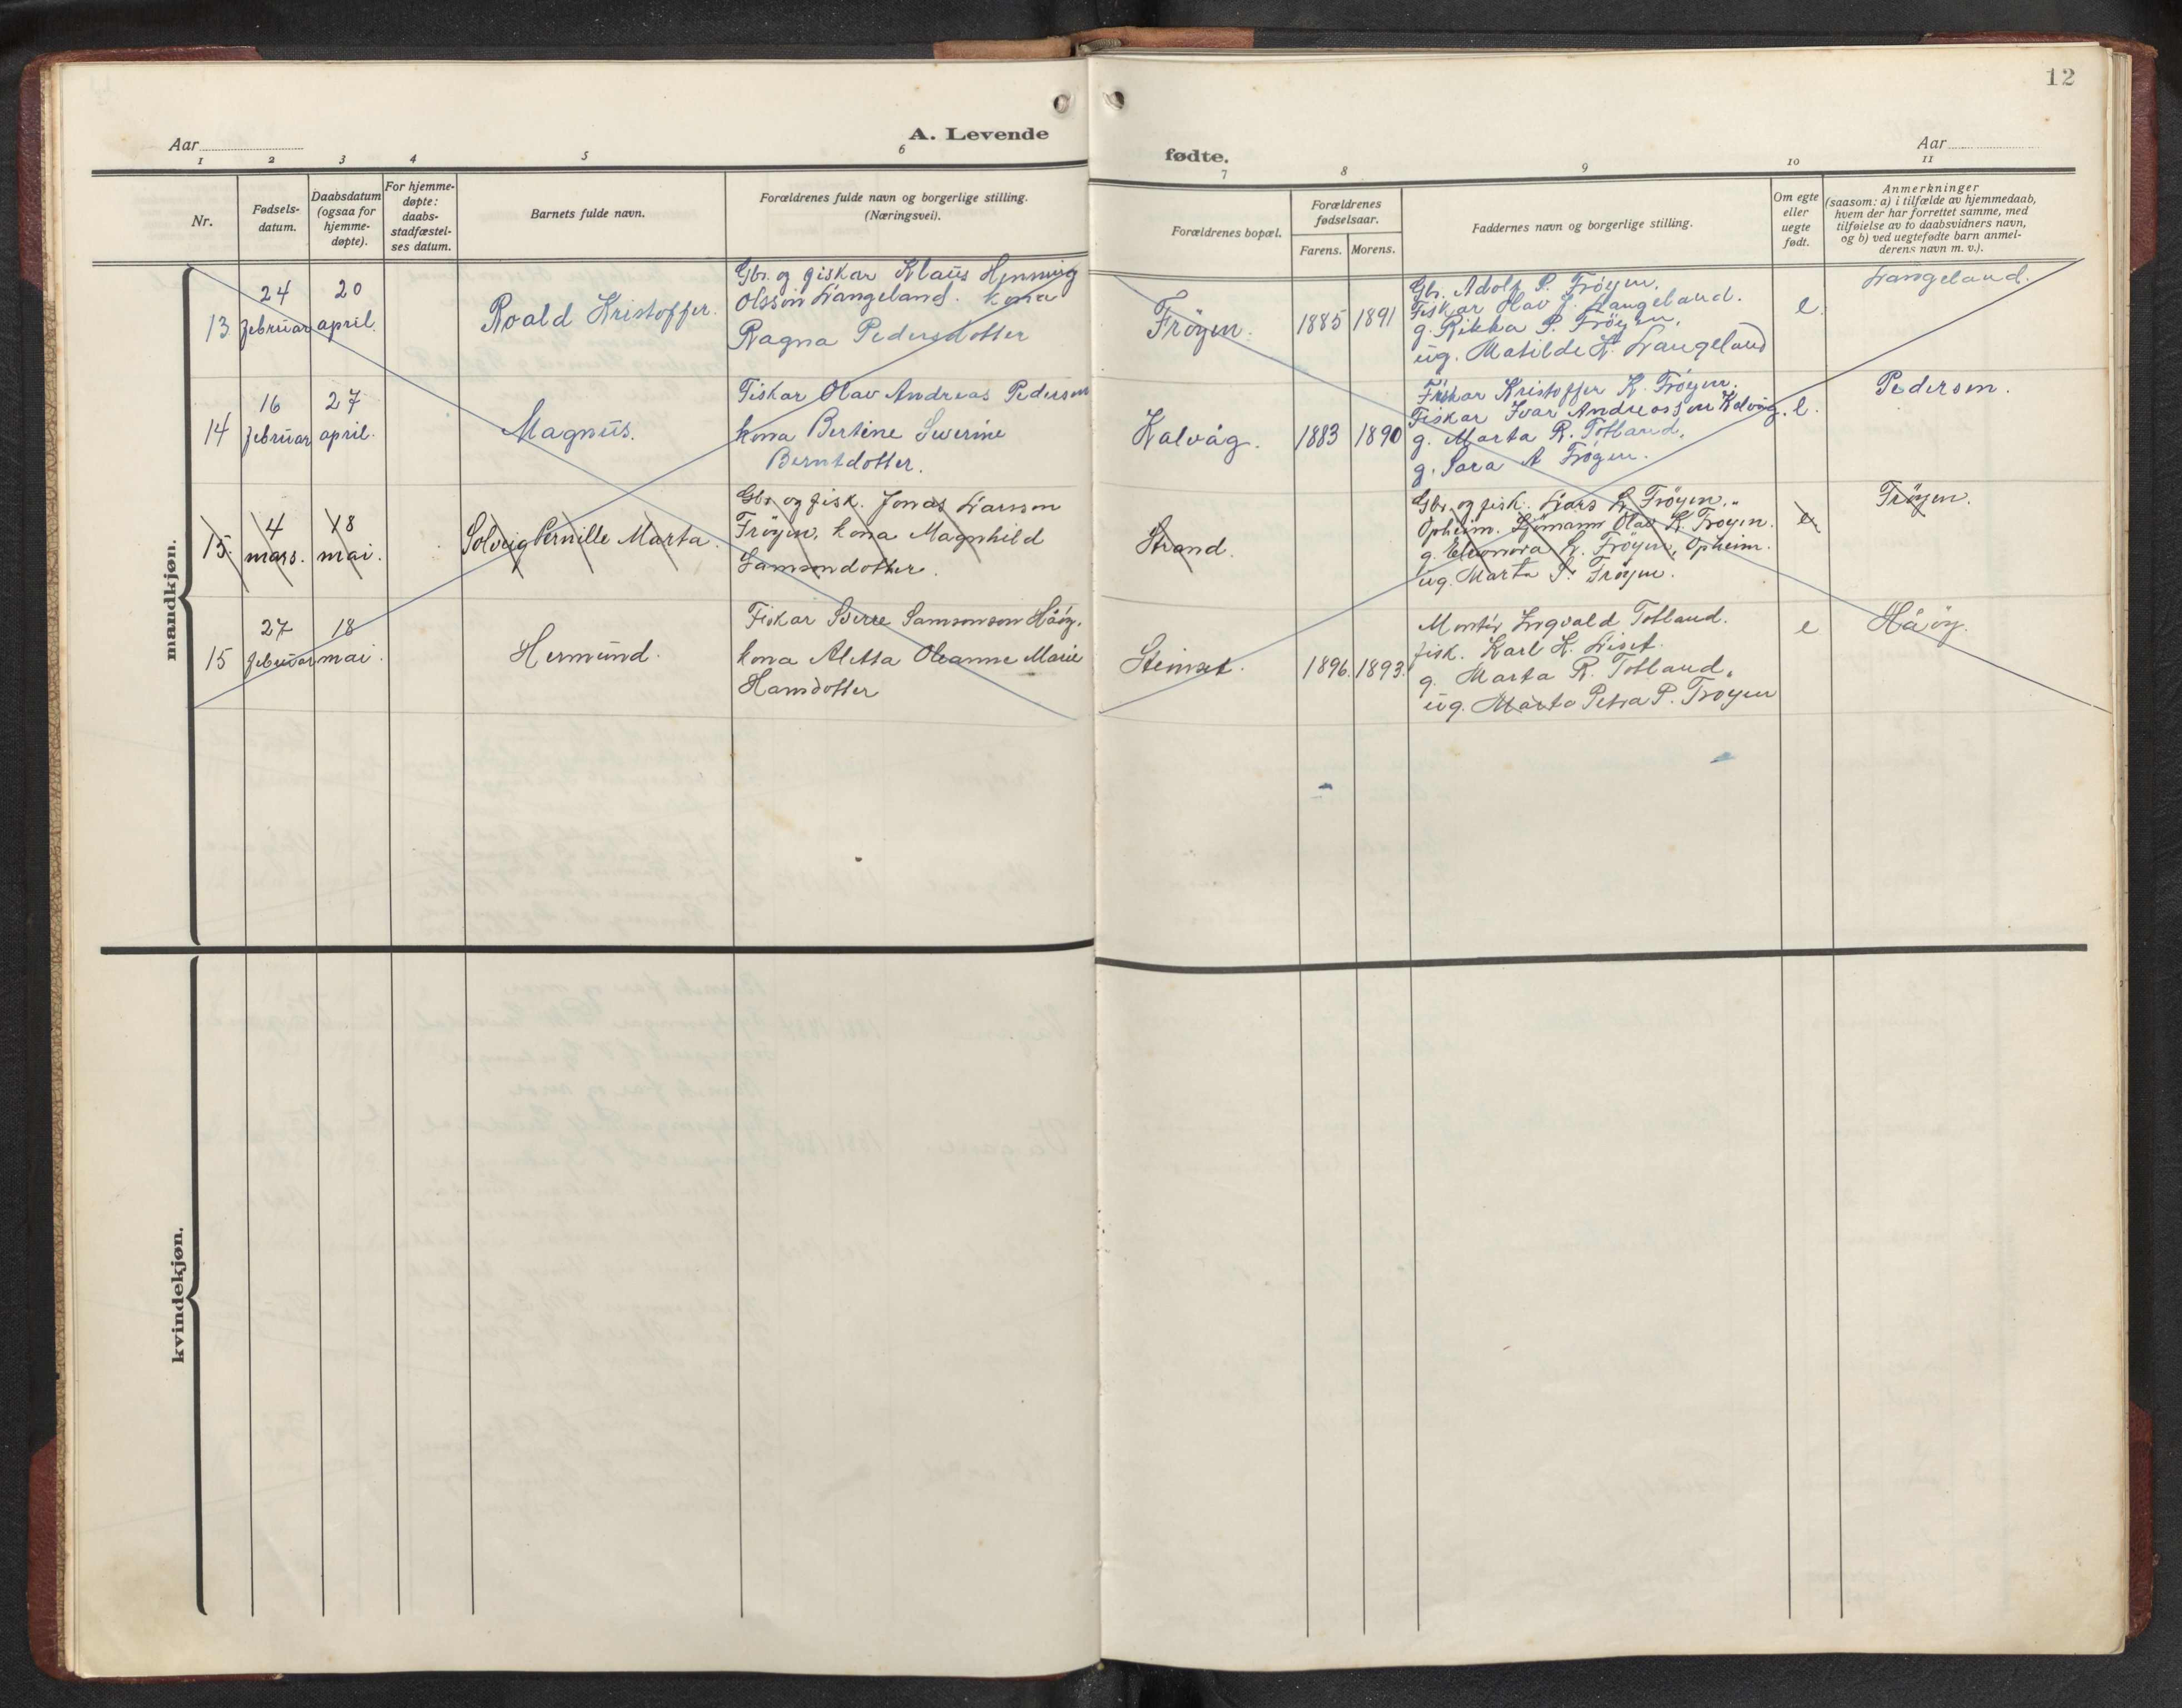 12
A. Levende
fødte.
Aar
Aar
1 2 3 4 5 6 7 8 9 10 11
Nr.
Fødsels-
datum.
Daabsdatum
(ogsaa for
hjemme-
døpte).
For hjemme-
døpte:
daabs-
stadfæstel-
ses datum.
Barnets fulde navn.
Forældrenes fulde navn og borgerlige stilling.
(Næringsvei).
Forældrenes bopæl.
Forældrenes
fødselsaar.
Farens. Morens.
Faddernes navn og borgerlige stilling.
Om egte
eller
uegte
født.
Anmerkninger
(saasom: a) i tilfælde av hjemmedaab,
hvem der har forrettet samme, med
tilføielse av to daabsvidners navn,
og b) ved uegtefødte barn anmel-
derens navn m. v.).
mandkjøn.
13
24
februar
20
april.
Roald Kristoffer.
Gbr. og fiskar Klaus Henning
Olsson Langeland. kona
Ragna Pedersdotter
Frøyen.
1885 1891
Gbr. Adolf P. Frøyen.
Fiskar Olav J. Langeland.
g. Rikka P. Frøyen.
ug. Matilde K. Langeland
e.
Langeland.
14
16
februar
27
april.
Magnus.
Fiskar Olav Andreas Pedersen
kona Bertine Severine
Berntdotter.
Kalvåg.
1883 1890
Fiskar Kristoffer K. Frøyen.
Fiskar Ivar Andreassen Kalvåg.
g. Marta R. Totland.
g. Sara A Frøyen.
e.
Pedersen.
15.
4
mars.
18
mai.
Solveig Pernille Marta.
Gbr og fisk. Jonas Larsson
Frøyen, kona Magnhild
Samsondotter.
Strand.
Gbr. og fisk. Lars L. Frøyen,
Opheim. Sjømann Olav K. Frøyen.
g. Eleonora L. Frøyen, Opheim.
ug. Marta S. Frøyen.
e
Frøyen.
15
27
februar
18
mai.
Hermund.
Fiskar Sverre Samsonson Håøy.
kona Aletta Oleanne Marie
Hansdotter
Steinset.
1896. 1893.
Montør Ingvald Totland.
fisk. Karl K. Liset.
g. Marta R. Totland.
ug. Marta Petra P. Frøyen
e
Håøy.
kvindekjøn.